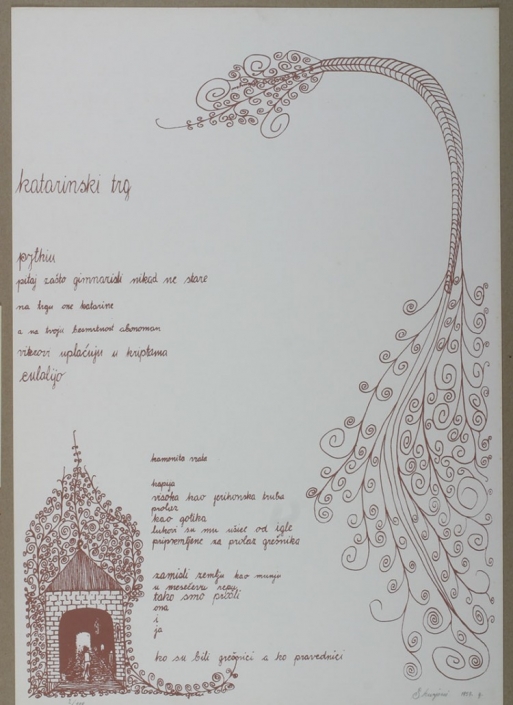 katarinski trg
pythiu
pitaj zašto gimnazisti nikad ne stare
na trgu one katarine
a na tvoju besmrtnost abonoman
vitezovi uplaćuju u kriptama
eulalijo
kamenita vrata
kapija
visoka kao jerihonska truba
prolaz
kao gotika
lukovi su mu ušice od igle
pripremljene za prolaz grešnika
zamisli zemlju kao munju
u mesečevu
tako smo prošli
ona
i
ja
ko su bili grešnici a ko pravednici